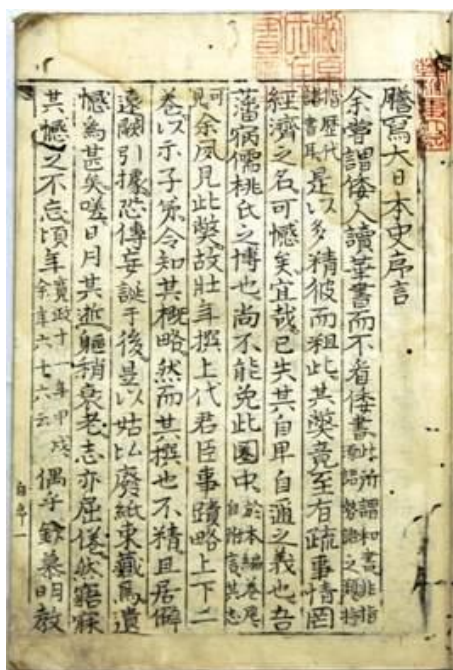 謄寫大日本史序言
余嘗謂倭人讀華書而不看倭書此所謂和書非指源語勢語之類特
指歷代諸書耳是以多精彼而粗此其獘竟至有疏事情罔
經濟之名可憾矣宜哉已失其自卑自邇之義也吾
藩病儒桃氏之博也尚不能免此圈中於本編卷尾自附言其志
可見余夙見此獘故壯年撰上代君臣事蹟略上下二
卷以示子孫令知其概略然而其撰也不精且居僻
遠闕引據恐傳妄誕于後是以姑以廢紙束藏焉遺
憾為甚矣嗟日月其逝軀稍衰老志亦屈倦然寤寐
其憾之不忘頃年寬政十一年甲戌余年六七六云偶乎慕明教
自序一